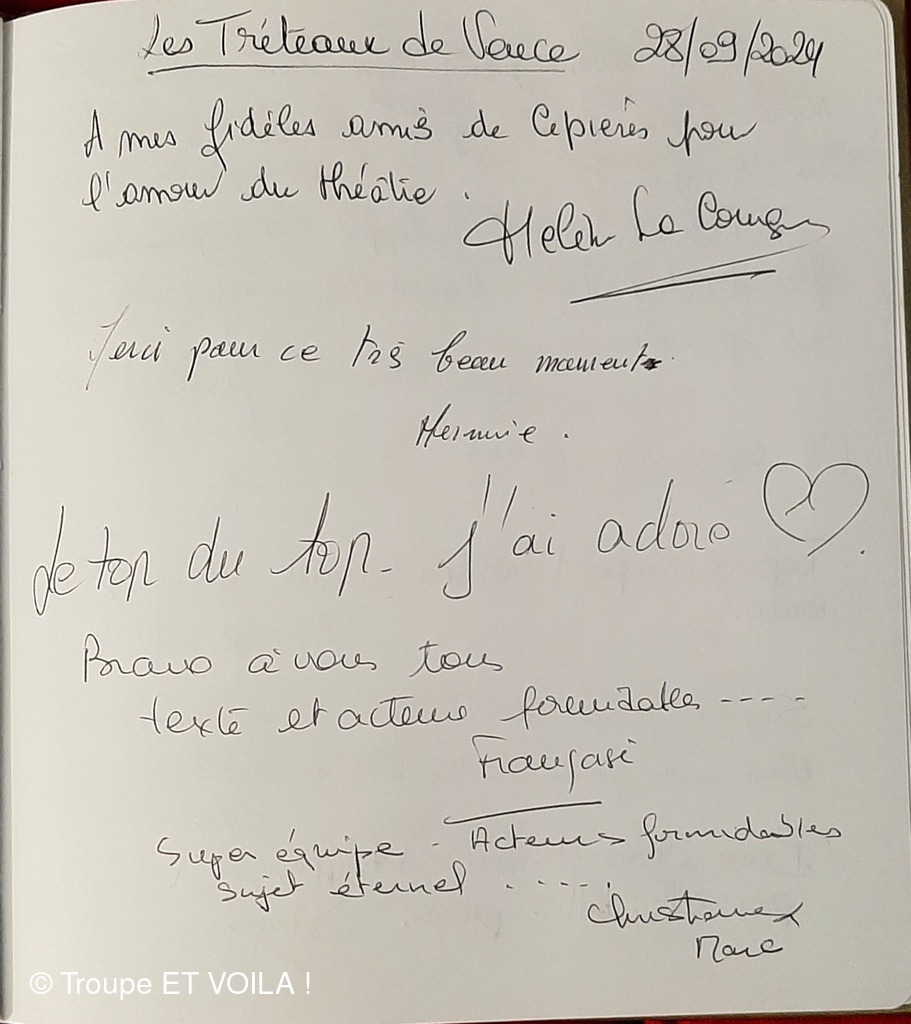 Les Tréteaux de Vence 28/09/2024
A mes fidèles amis de Cipières pour
l'amour du théâtre.
Helèn
Merci pour ce très beau moment.
Le top du top. J'ai adoré ♡.
Bravo à vous tous
texte et acteurs formidables ----
Super équipe - Acteurs formidables
sujet éternel .....
Christiane
Marc
© Troupe ET VOILA !